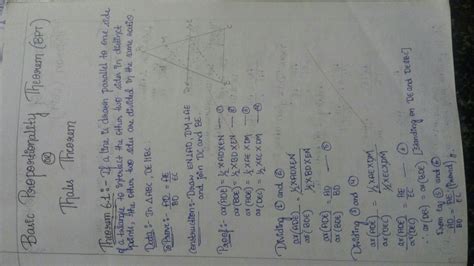 Basic Proportionality Theorem (BPT)
(or)
Thales Theorem
Theorem 6.1 :- If a line is drawn parallel to one side
of a triangle to intersect the other two sides in distinct
points, the other two sides are divided in the same ratio.
Data :- In △ABC, DE || BC
To Prove :- AD/BD = AE/EC
Construction :- Draw EN⊥AD, DM⊥AE
and join DC and BE.
Proof :- ar(ADE) = 1/2 × AD × EN — ①
ar(BDE) = 1/2 × BD × EN — ②
ar(ADE) = 1/2 × AE × DM — ③
ar(DEC) = 1/2 × EC × DM — ④
Dividing ① and ②
ar(ADE)/ar(BDE) = 1/2 × AD × EN / 1/2 × BD × EN
ar(ADE)/ar(BDE) = AD/BD
Dividing ③ and ④
ar(ADE)/ar(DEC) = 1/2 × AE × DM / 1/2 × EC × DM
ar(ADE)/ar(DEC) = AE/EC
ar(DEC) = ar(BDE) [Standing on DE and DE||BC]
From eq
AD/BD = AE/EC